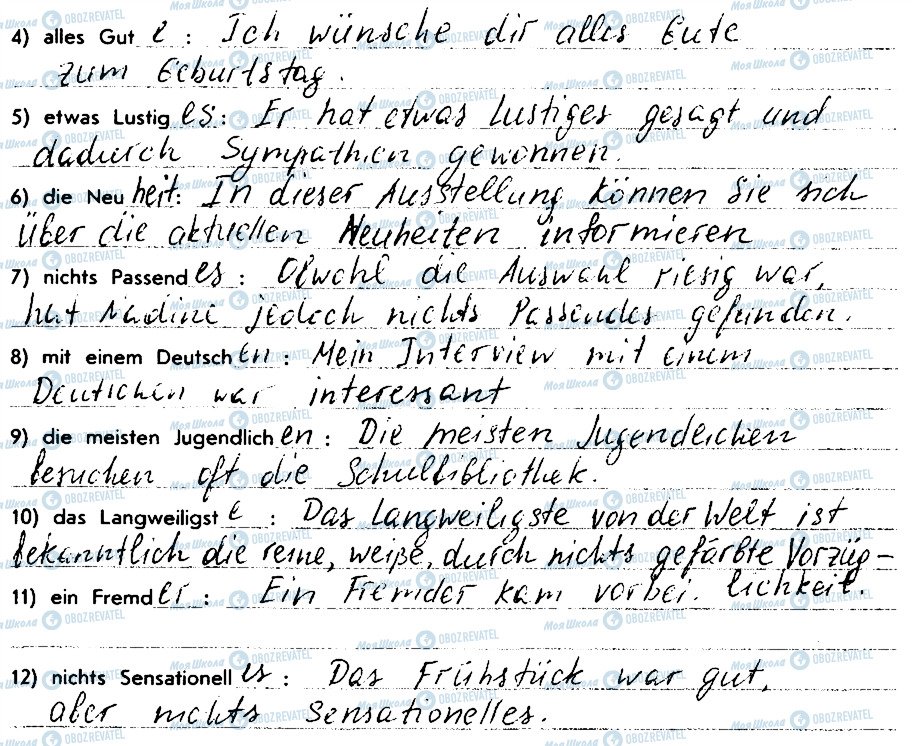 4) alles Gute : Ich wünsche dir alles Gute
zum Geburtstag.
5) etwas Lustiges: Er hat etwas Lustiges gesagt und
dadurch Sympathien gewonnen.
6) die Neuheit: In dieser Ausstellung können Sie sich
über die aktuellen Neuheiten informieren
7) nichts Passendes : Obwohl die Auswahl riesig war,
hat Nadine jedoch nichts Passendes gefunden.
8) mit einem Deutschen : Mein Interview mit einem
Deutschen war interessant
9) die meisten Jugendlichen : Die meisten Jugendlichen
besuchen oft die Schulbibliothek.
10) das Langweiligste : Das Langweiligste von der Welt ist
bekanntlich die reine, weiße, durch nichts gefärbte Vorzüg-
11) ein Fremder : Ein Fremder kam vorbei. lichkeit.
12) nichts Sensationelles : Das Frühstück war gut,
aber nichts Sensationelles.